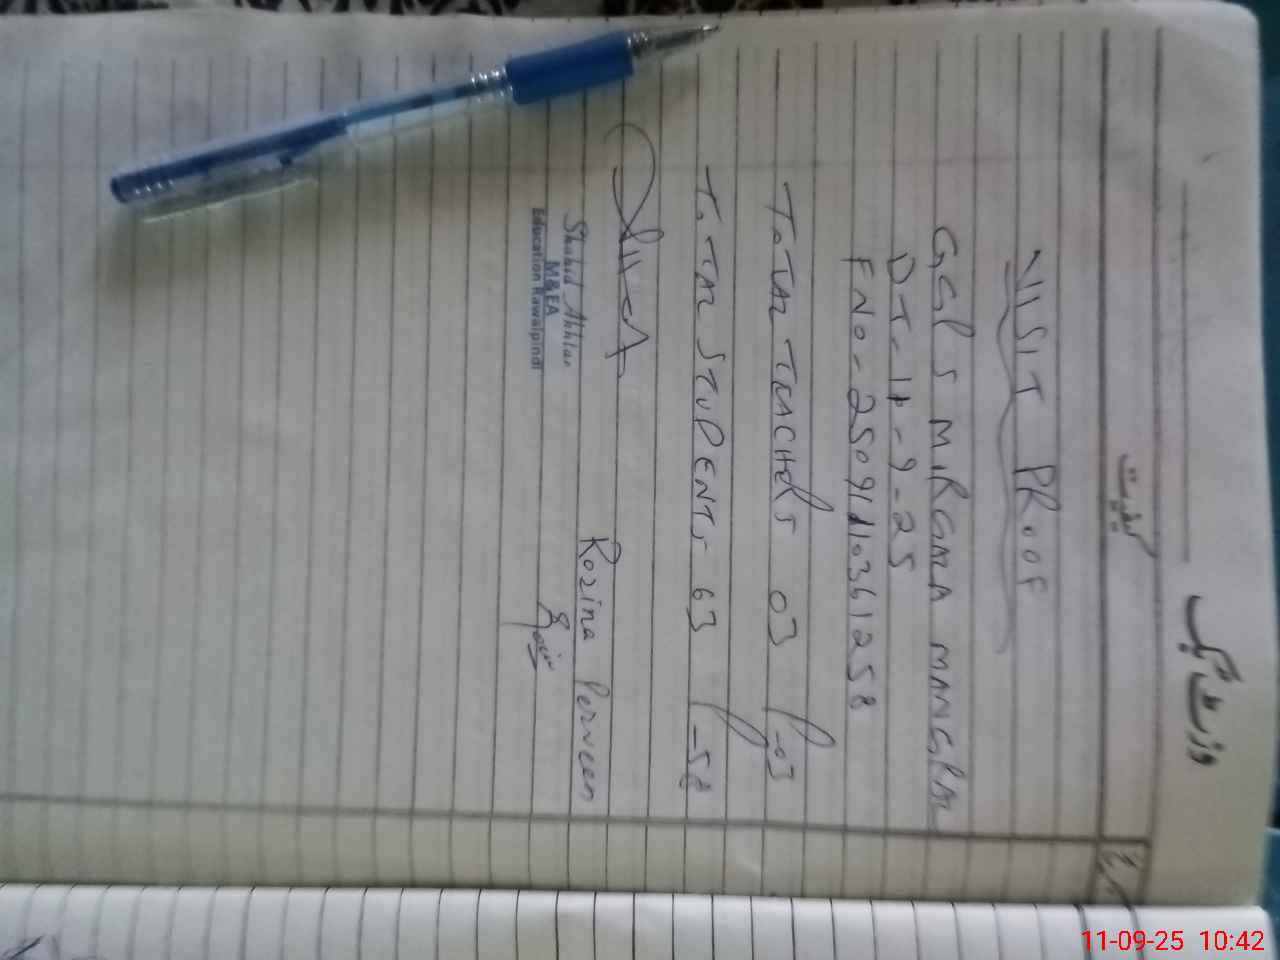 وزٹ بک
کیفیت
VISIT PROOF
GGPS MIRGALA MANGRAL
DT-11-9-25
FNO-25091110361258
TOTAL TEACHERS 03 P-03
TOTAL STUDENTS 63 P-58
Shahid Akhtar
M&EA
Education Rawalpindi
Rozina Perveen
11-09-25 10:42